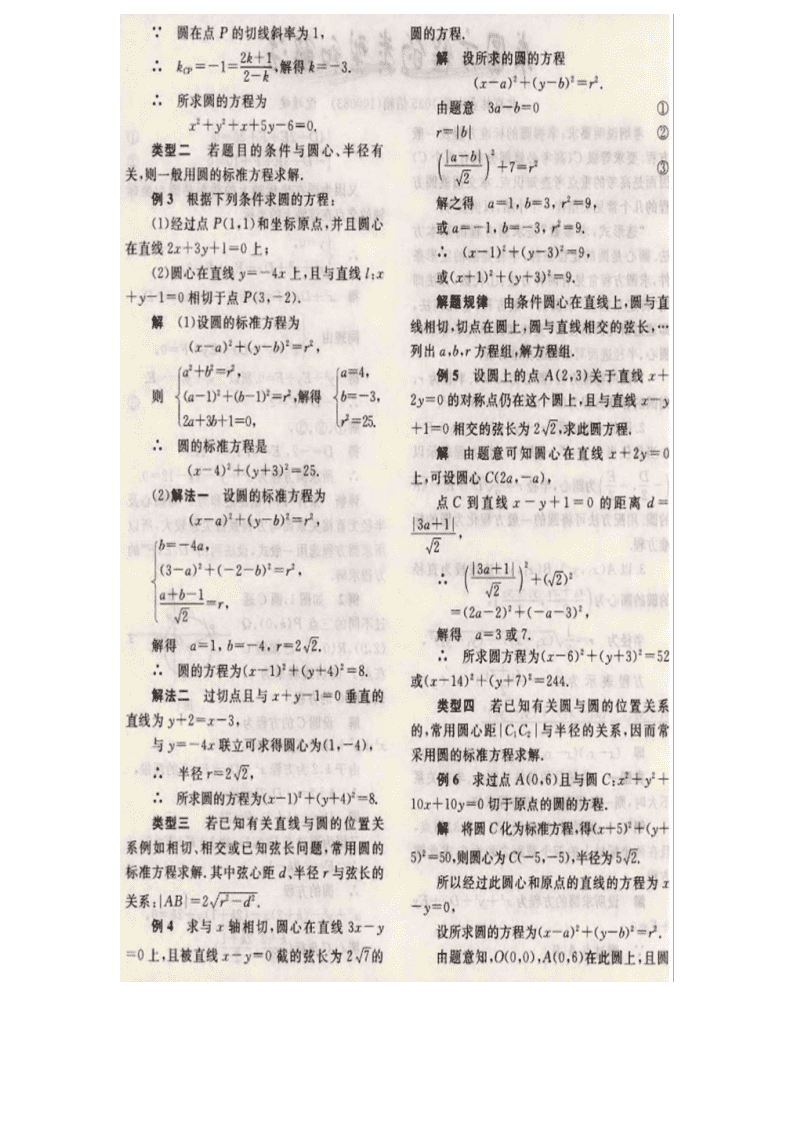 ∵ 圆在点 P 的切线斜率为 1,
∴ k_{CP}=-1=\frac{2k+1}{2-k},解得 k=-3.
∴ 所求圆的方程为
x²+y²+x+5y-6=0.
类型二 若题目的条件与圆心、半径有
关,则一般用圆的标准方程求解.
例 3 根据下列条件求圆的方程:
(1)经过点 P(1,1)和坐标原点,并且圆心
在直线 2x+3y+1=0 上;
(2)圆心在直线 y=-4x 上,且与直线 l:x
+y-1=0 相切于点 P(3,-2).
解 (1)设圆的标准方程为
(x-a)²+(y-b)²=r²,
则 { a²+b²=r², (a-1)²+(b-1)²=r², 2a+3b+1=0, 解得 { a=4, b=-3, r²=25.
∴ 圆的标准方程是
(x-4)²+(y+3)²=25.
(2)解法一 设圆的标准方程为
(x-a)²+(y-b)²=r²,
{ b=-4a,
(3-a)²+(-2-b)²=r²,
\frac{a+b-1}{√2}=r,
解得 a=1, b=-4, r=2√2.
∴ 圆的方程为(x-1)²+(y+4)²=8.
解法二 过切点且与 x+y-1=0 垂直的
直线为 y+2=x-3,
与 y=-4x 联立可求得圆心为(1,-4),
∴ 半径 r=2√2,
∴ 所求圆的方程为(x-1)²+(y+4)²=8.
类型三 若已知有关直线与圆的位置关
系例如相切、相交或已知弦长问题,常用圆的
标准方程求解.其中弦心距 d、半径 r 与弦长的
关系:|AB|=2√(r²-d²).
例 4 求与 x 轴相切,圆心在直线 3x-y
=0 上,且被直线 x-y=0 截的弦长为 2√7的
圆的方程.
解 设所求的圆的方程
(x-a)²+(y-b)²=r².
由题意 3a-b=0 ①
r=|b| ②
(\frac{|a-b|}{√2})²+7=r² ③
解之得 a=1, b=3, r²=9.
或 a=-1, b=-3, r²=9.
∴ (x-1)²+(y-3)²=9,
或(x+1)²+(y+3)²=9.
解题规律 由条件圆心在直线上,圆与直
线相切,切点在圆上,圆与直线相交的弦长,…
列出 a,b,r 方程组,解方程组.
例 5 设圆上的点 A(2,3)关于直线 x+
2y=0 的对称点仍在这个圆上,且与直线 x-y
+1=0 相交的弦长为 2√2,求此圆方程.
解 由题意可知圆心在直线 x+2y=0
上,可设圆心 C(2a,-a),
点 C 到直线 x-y+1=0 的距离 d=
\frac{|3a+1|}{√2},
∴ (\frac{|3a+1|}{√2})²+(√2)²
=(2a-2)²+(-a-3)²,
解得 a=3 或 7.
∴ 所求圆方程为(x-6)²+(y+3)²=52
或(x-14)²+(y+7)²=244.
类型四 若已知有关圆与圆的位置关系
的,常用圆心距|C₁C₂|与半径的关系,因而常
采用圆的标准方程求解.
例 6 求过点 A(0,6)且与圆 C:x²+y²+
10x+10y=0 切于原点的圆的方程.
解 将圆 C 化为标准方程,得(x+5)²+(y+
5)²=50,则圆心为 C(-5,-5),半径为 5√2.
所以经过此圆心和原点的直线的方程为 x
-y=0,
设所求圆的方程为(x-a)²+(y-b)²=r².
由题意知,O(0,0),A(0,6)在此圆上,且圆